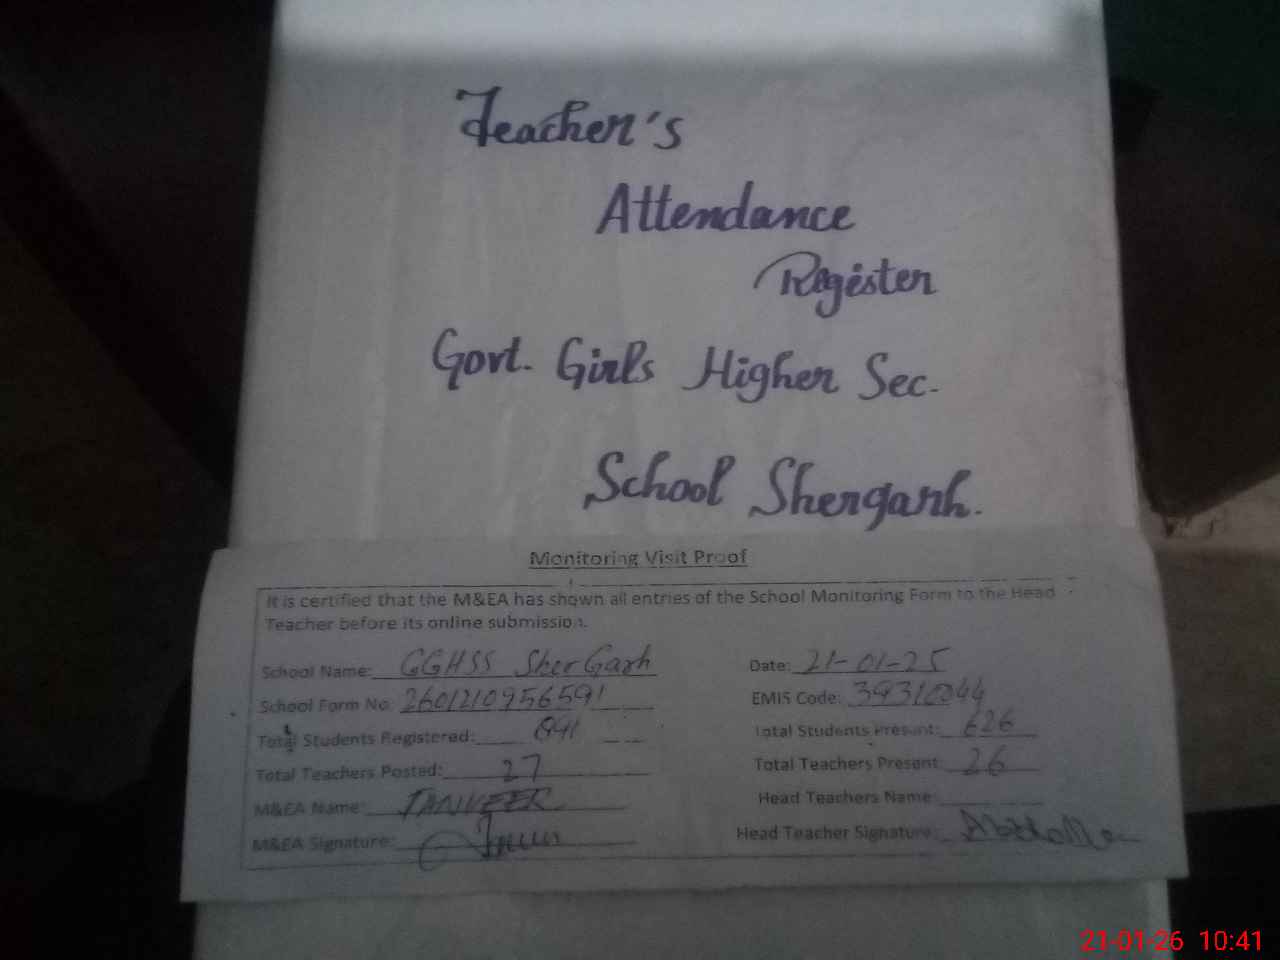 Teacher's
Attendance
Register
Govt. Girls Higher Sec.
School Shergarh.
Monitoring Visit Proof
It is certified that the M&EA has shown all entries of the School Monitoring Form to the Head
Teacher before its online submission.
School Name: GGHSS SherGarh Date: 21-01-25
School Form No: 2601210956591 EMIS Code: 39310044
Total Students Registered: 891 Total Students Present: 626
Total Teachers Posted: 27 Total Teachers Present 26
M&EA Name: TANVEER Head Teachers Name:
M&EA Signature: Head Teacher Signature:
21-01-26 10:41